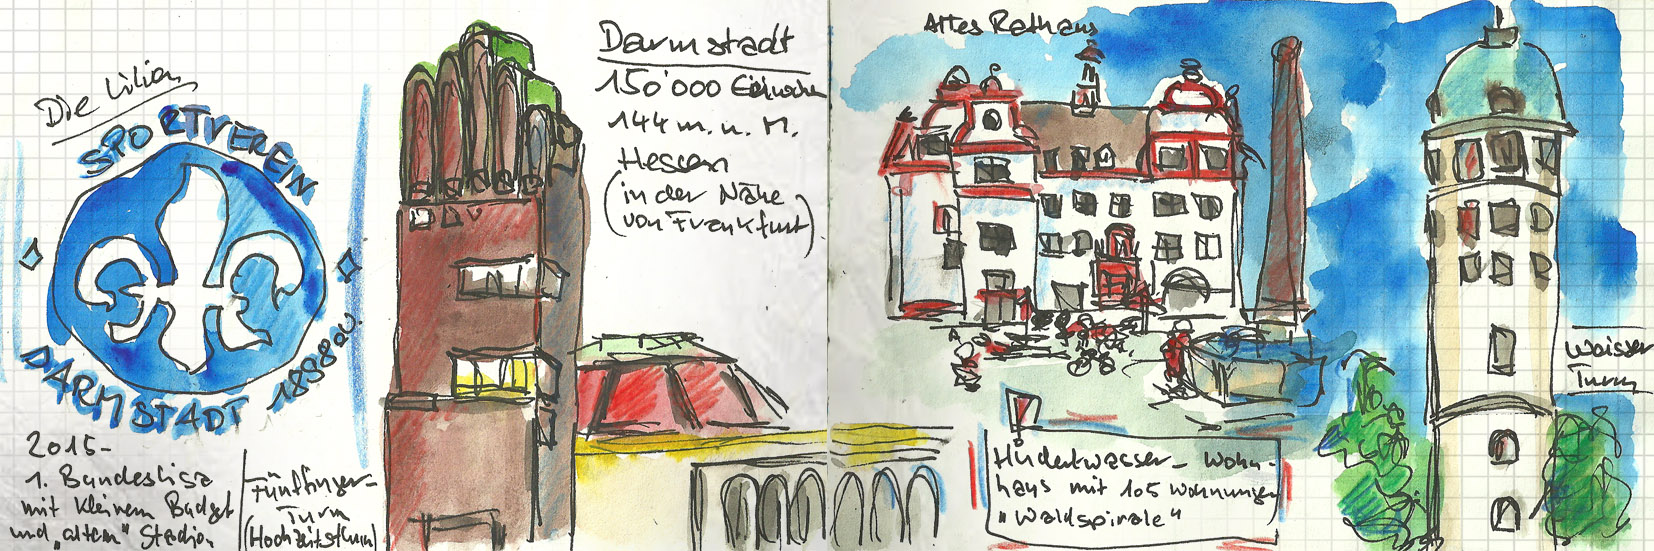 Die Lilien
SPORTVEREIN
DARMSTADT 1898 e.V.
2015-
1. Bundesliga
mit kleinem Budget
und „altem“ Stadion
Fünffinger-
Turm
(Hochzeitsturm)
Darmstadt
150'000 Einwohner
144 m. ü. M.
Hessen
(in der Nähe
von Frankfurt)
Altes Rathaus
Hundertwasser-Wohn-
haus mit 105 Wohnungen
„Waldspirale“
Weisser
Turm